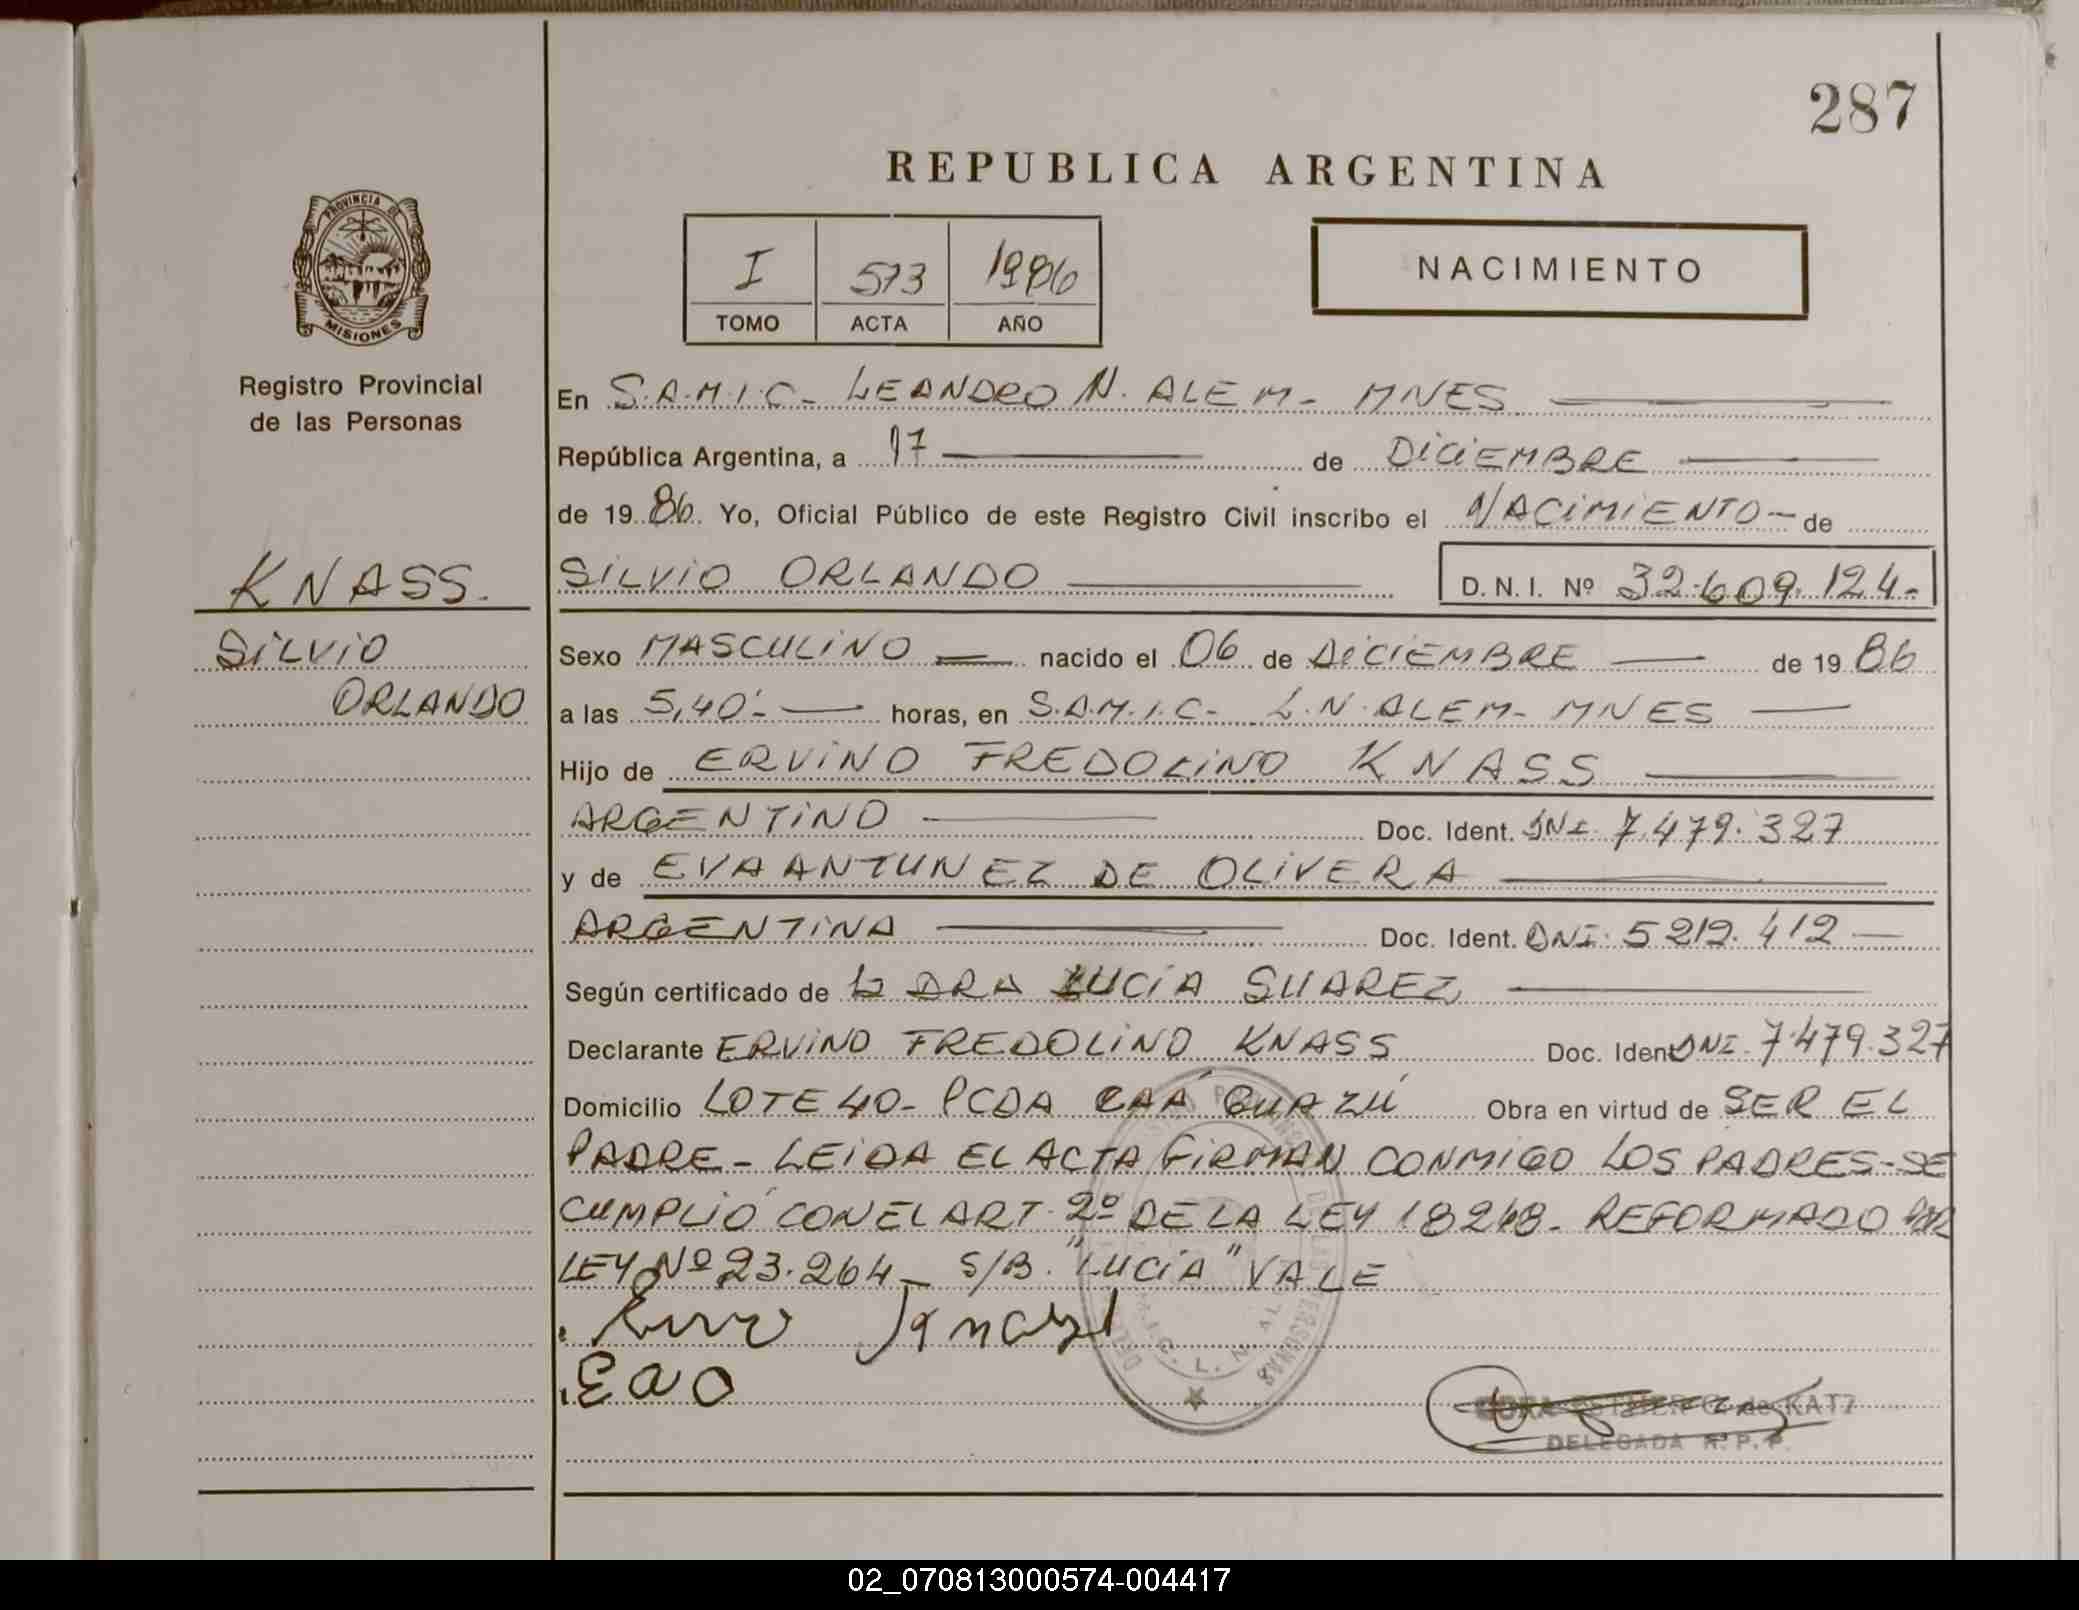 287
REPUBLICA ARGENTINA
I 573 1986
TOMO ACTA AÑO
NACIMIENTO
PROVINCIA DE
MISIONES
Registro Provincial
de las Personas
KNASS.
SILVIO
ORLANDO
En S.A.M.I.C- LEANDRO N. ALEM- MNES
República Argentina, a 17 de DICIEMBRE
de 1986. Yo, Oficial Público de este Registro Civil inscribo el NACIMIENTO- de
SILVIO ORLANDO D. N. I. Nº 32.609.124-
Sexo MASCULINO nacido el 06 de DICIEMBRE de 1986
a las 5,40'- horas, en S.A.M.I.C- L.N.ALEM- MNES
Hijo de ERVINO FREDOLINO KNASS
ARGENTINO Doc. Ident. DNI. 7.479.327
y de EVA ANTUNEZ DE OLIVERA
ARGENTINA Doc. Ident. DNI. 5 212.412
Según certificado de la DRA LUCIA SUAREZ
Declarante ERVINO FREDOLINO KNASS Doc. Ident DNI. 7.479.327
Domicilio LOTE 40- PCDA CAÁ GUAZÚ Obra en virtud de SER EL
PADRE- LEIDA EL ACTA FIRMAN CONMIGO LOS PADRES-SE
CUMPLIÓ CON EL ART. 2º DE LA LEY 18248- REFORMADO POR
LEY Nº 23.264- S/B. "LUCIA" VALE
DELEGADA R. P. P.
02_070813000574-004417